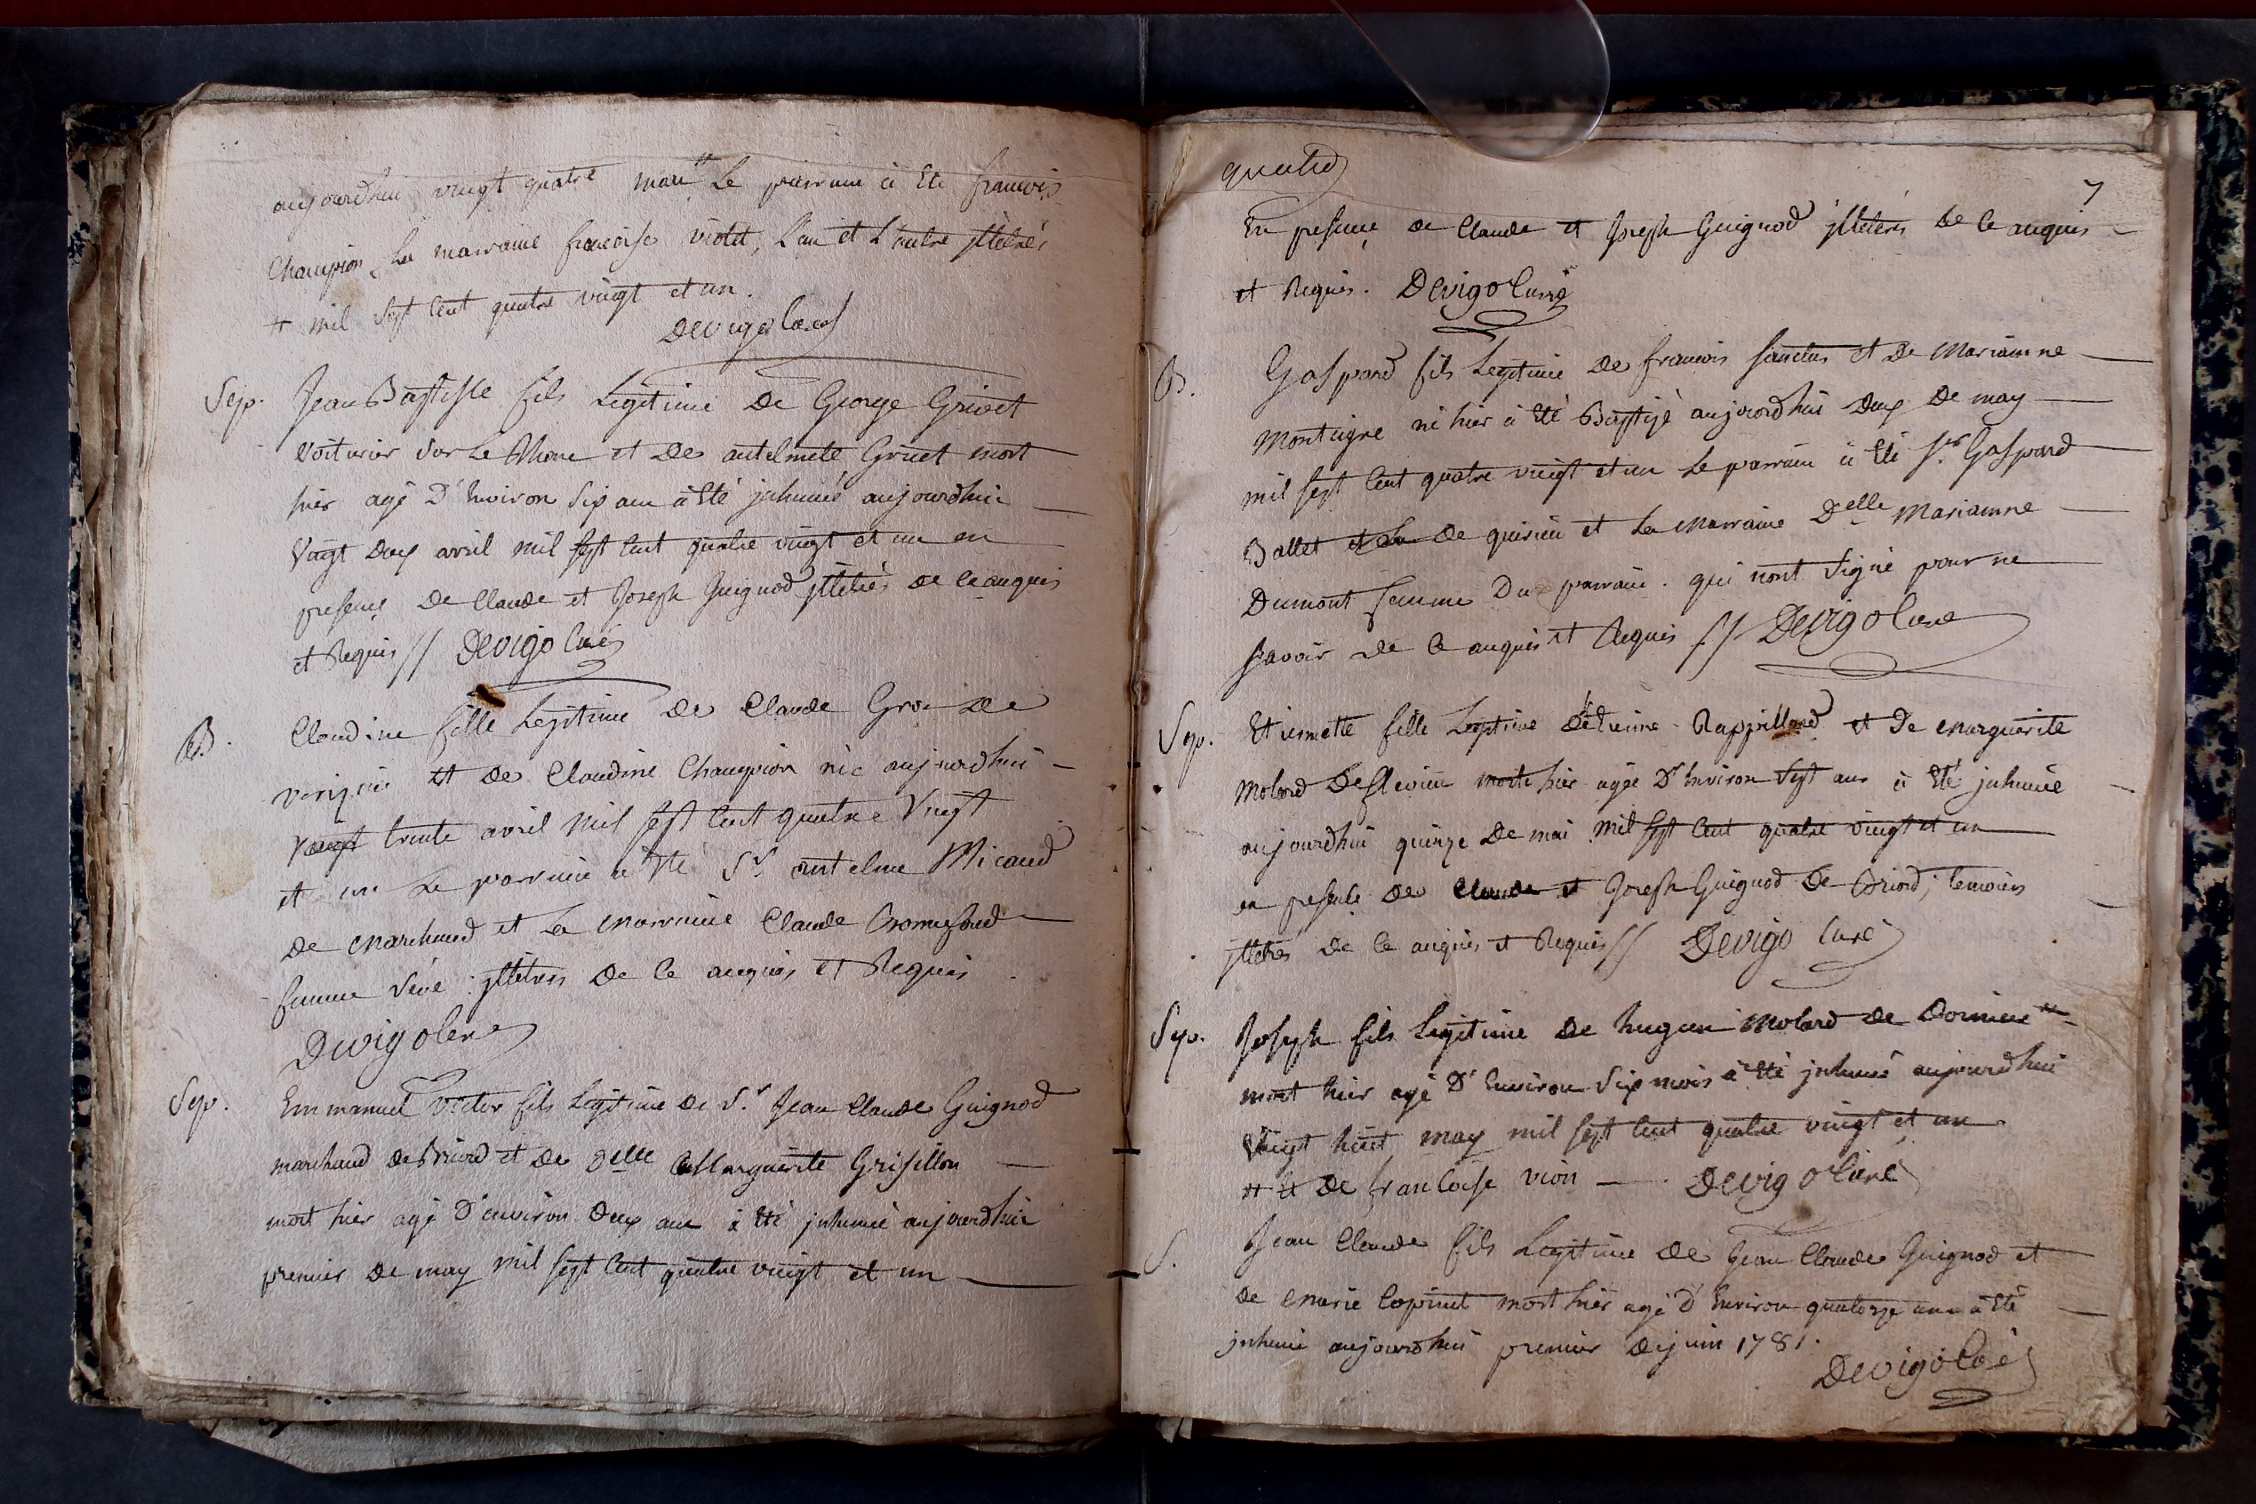 aujourdhui vingt quatre mars # Le parrain à Eté francois
Champion La marraine francoise violet, L'un et L'autre jlletrés
# mil sept cent quatre vingt et un.
Devigo Curé
Sep. Jean Baptiste fils Legitime De George Grivet
voiturier sur Le Rhone et De antelmete Gruet mort
hier agé D'Environ six ans à Eté jnhumé aujourdhui
vingt Deux avril mil sept cent quatre vingt et un en
presence De Claude et Joseph Guignod jlletrés De ce anquis
et Requis // Devigo Curé
B. Claudine fille Legitime De Claude Gros De
verizieu et De Claudine Champion née aujourdhui
trente avril mil sept cent quatre vingt
et un Le parrain à Eté Sr antelme Micaud
De marchand et La marraine Claude
femme jlletrés De ce anquis et Requis
Devigo Curé
Sep. Emmanuel victor fils Legitime De Sr Jean Claude Guignod
marchand De Briord et De Delle Marguerite Grisillon
mort hier agé D'environ Deux ans à Eté jnhumé aujourdhui
premier De may mil sept cent quatre vingt et un
quatre
7
En presence De Claude et Joseph Guignod jlletrés De ce anquis
et Requis. Devigo Curé
B. Gaspard fils Legitime De francois et De Mariamne
Montaigne né hier à Eté Baptizé aujourdhui Deux De may
mil sept cent quatre vingt et un Le parrain à Eté Sr Gaspard
Ballet et La De quirieu et La Marraine Delle Mariamne
Dumont femme Du parrain. qui nont signé pour ne
scavoir De ce anquis et Requis // Devigo Curé
Sep. Etiennette fille Legitime D'etienne Rappillard et De Marguerite
Molard De flevieu morte hier agée D'Environ sept ans à Eté jnhumée
aujourdhui quinze De mai mil sept cent quatre vingt et un
en presence De Claude et Joseph Guignod De Briord, temoins
jlletrés De ce anquis et Requis // Devigo Curé
Sep. Joseph fils Legitime De hugue Molard De Dornieu #
mort hier agé D'Environ six mois à Eté jnhumé aujourdhui
vingt huit may mil sept cent quatre vingt et un
# et De francoise vion Devigo Curé
S. Jean Claude fils Legitime De Jean Claude Guignod et
De Marie Copinet mort hier agé D'Environ quatorze ans à Eté
jnhumé aujourdhui premier De juin 1781.
Devigo Curé